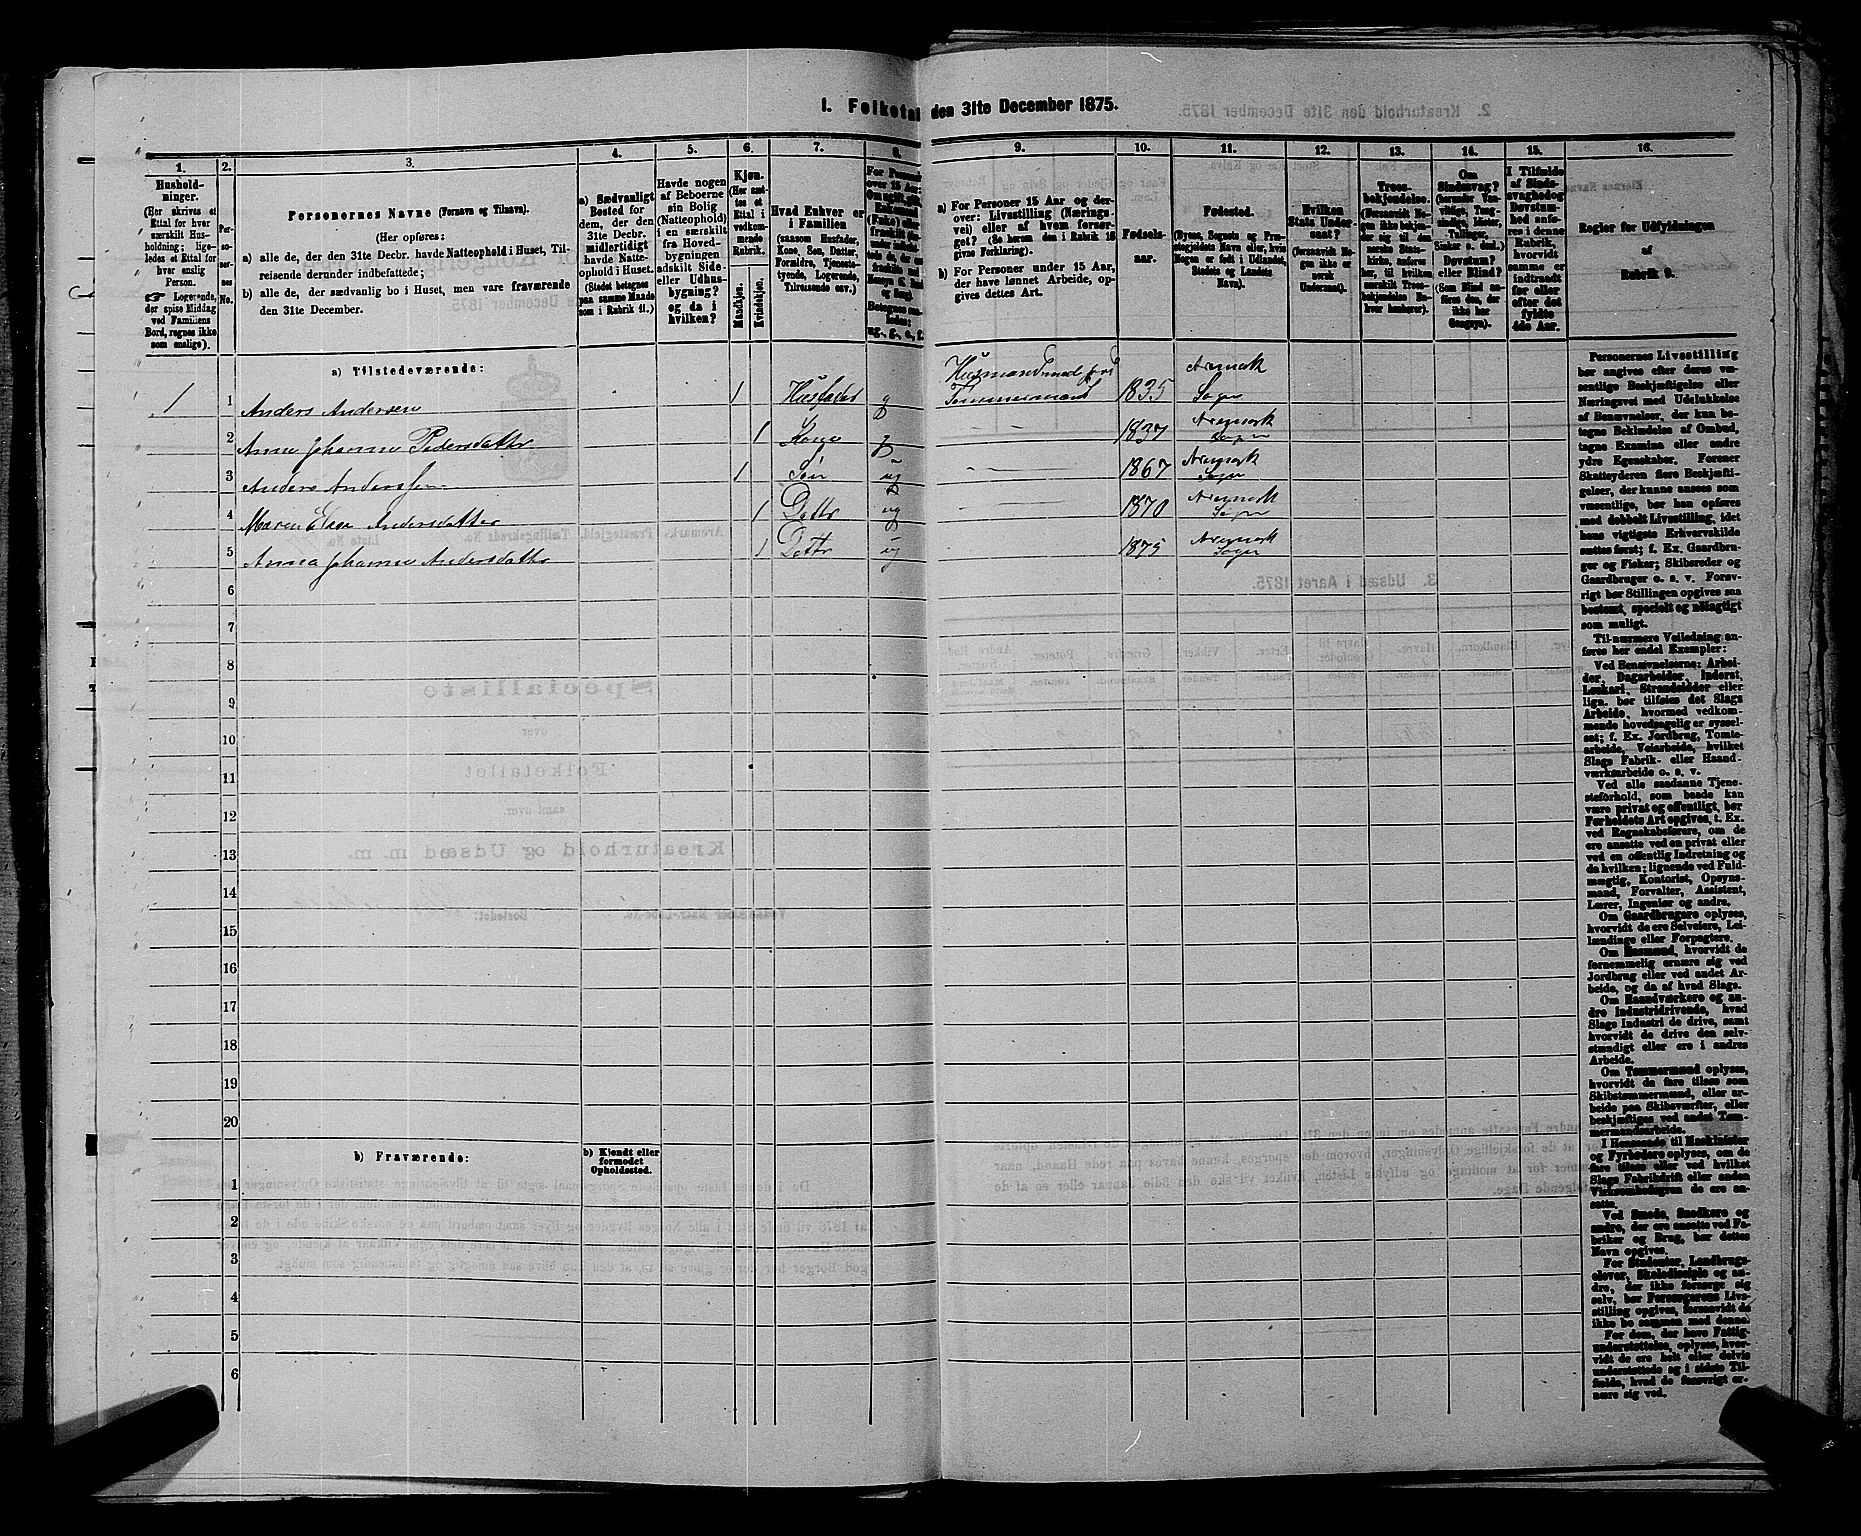 1. Folketal den 31te December 1875.
1.
2.
3.
4.
5.
6.
7.
8.
9.
10.
11.
12.
13.
14.
15.
16.
Hushold-
ninger.
(Her skrives et
Ettal for hver
særskilt Hus-
holdning; lige-
ledes et Ettal for
hver enslig
Person.
Logerende,
der spise Middag
ved Familiens
Bord, regnes ikke
som enslige).
Per-
so-
ner-
nes
No.
Personernes Navne (Fornavn og Tilnavn).
(Her opføres:
a) alle de, der den 31te Decbr. havde Natteophold i Huset, Til-
reisende derunder indbefattede;
b) alle de, der sædvanlig bo i Huset, men vare fraværende
den 31te December.
a) Sædvanligt
Bosted for
dem, der den
31te Decbr.
midlertidigt
havde Natte-
ophold i Huset.
(Stedet betegnes
paa samme Maade
som i Rubrik 11.)
Havde nogen
af Beboerne
sin Bolig
(Natteophold)
i en særskilt
fra Hoved-
bygningen
adskilt Side-
eller Udhus-
bygning?
og da i
hvilken?
Kjøn.
(Her sæt-
tes et
Ettal i
vedkom-
mende
Rubrik.)
Mandkjøn.
Kvindekjøn.
Hvad Enhver er
i Familien
(saasom Husfader,
Kone, Søn, Datter,
Forældre, Tjeneste-
tyende, Logerende,
Tilreisende osv.)
a) For Personer 15 Aar og der-
over: Livsstilling (Nærings-
vei) eller af hvem forsør-
get? (Se herom den i Rubrik 16
givne Forklaring).
b) For Personer under 15 Aar,
der have lønnet Arbeide, op-
gives dettes Art.
Fødsels-
aar.
Fødested.
(Byens, Sognets og Præ-
stegjeldets Navn eller, hvis
Nogen er født i Udlandet,
Stedets og Landets
Navn).
Hvilken
Stats Under-
saat?
(forsaavidt No-
gen ikke er
norsk
Undersaat).
Troes-
bekjendelse.
(Forsaavidt No-
gen ikke bekjen-
der sig til den
norske Stats-
kirke, anføres
her, til hvilken
særskilt Troes-
bekjendelse En-
hver henhører).
Om
Sindssvag?
Døvstum?
eller Blind?
(Som Blind an-
føres den, der
ikke har
Gangsyn).
I Tilfælde
af Sinds-
svaghed og
Døvstum-
hed anfø-
res i denne
Rubrik,
hvorvidt
samme er
indtraadt
før eller
efter det
fyldte
4de Aar.
Regler for Udfyldningen
af
Rubrik 9.
a) Tilstedeværende:
1 1 Anders Andersen 1 Husfader g Husmand med Jord Tømmermand 1835 Aremark Sogn
2 Anne Johanne Pedersdatter 1 Kone g 1837 Aremark Sogn
3 Anders Anderssen 1 Søn ug 1867 Aremark Sogn
4 Maren Elise Andersdatter 1 Dattr ug 1870 Aremark Sogn
5 Anna Johanne Andersdatter 1 Dattr ug 1875 Aremark Sogn
6
7
8
9
10
11
12
13
14
15
16
17
18
19
20
b) Fraværende:
b) Kjendt eller
formodet
Opholdssted.
1
2
3
4
5
6
Personernes Livsstilling
bør angives efter deres væ-
sentlige Beskjæftigelse eller
Næringsvei med Udelukkelse
af Benævnelser, der kun be-
tegne Beklædelse af Ombud,
tagne Examina eller andre
ydre Egenskaber. Forener
Skatteyderen flere Beskjæfti-
gelser, der kunne ansees som
væsentlige, bør han opføres
med dobbelt Livsstilling, idet
hans vigtigste Erhvervskilde
sættes først; f. Ex. Gaardbru-
ger og Fisker; Skibsreder og
Gaardbruger o. s. v. Forøv-
rigt bør Stillingen opgives saa
bestemt, specielt og nøiagtigt
som muligt.
Til nærmere Veiledning an-
føres her endel Exempler:
Ved Benævnelserne: Arbei-
der, Dagarbeider, Inderst,
Løskarl, Strandsidder eller
lign. bør tilføies det Slags
Arbeide, hvormed vedkom-
mende hovedsagelig er syssel-
sat; f. Ex. Jordbrug, Tomte-
arbeide, Veiarbeide, hvilket
Slags Fabrik- eller Haand-
værksarbeide o. s. v.
Ved alle saadanne Tjene-
steforhold, som baade kan
være privat og offentligt, bør
Forholdets Art opgives, t. Ex.
ved Regnskabsførere, om de
ere ansatte ved en privat eller
ved en offentlig Indretning og
da hvilken; lignende ved Fuld-
mægtig, Kontorist, Opsyns-
mand, Forvalter, Assistent,
Lærer, Ingeniør og andre.
Om Gaardbrugere oplyses,
hvorvidt de ere Selveiere, Lei-
lændinge eller Forpagtere.
Om Husmænd, hvorvidt de
fornemmelig ernære sig ved
Jordbrug eller ved andet Ar-
beide, og da af hvad Slags.
Om Haandværkere og an-
dre Industridrivende, hvad
Slags Industri de drive, samt
hvorvidt de drive den selv-
stændigt eller ere i andres
Arbeide.
Om Tømmermænd oplyses,
hvorvidt de fare tilsøs som
Skibstømmermænd, eller ar-
beide paa Skibsværfter, eller
beskjæftiges ved andet Tøm-
mermandsarbeide.
I Henseende til Maskinister
og Fyrbødere oplyses, om de
fare tilsøs eller ved hvilket
Slags Fabrikdrift eller anden
Virksomhedsgren de ere an-
satte.
Ved Smede, Snedkere og
andre, der ere ansatte ved Fa-
briker og Brug, bør dettes
Navn opgives.
For Studenter, Landbrugs-
elever, Skoledisciple og an-
dre, der ikke forsørge sig
selv, bør Forsørgerens Livs-
stilling opgives, forsaavidt de
ikke bo sammen med denne.
For dem, der have Fattig-
understøttelse, oplyses, hvor-
vidt de ere helt eller delvis
understøttede og i sidste Til-
fælde, hvad de forøvrigt er-
nære sig ved.